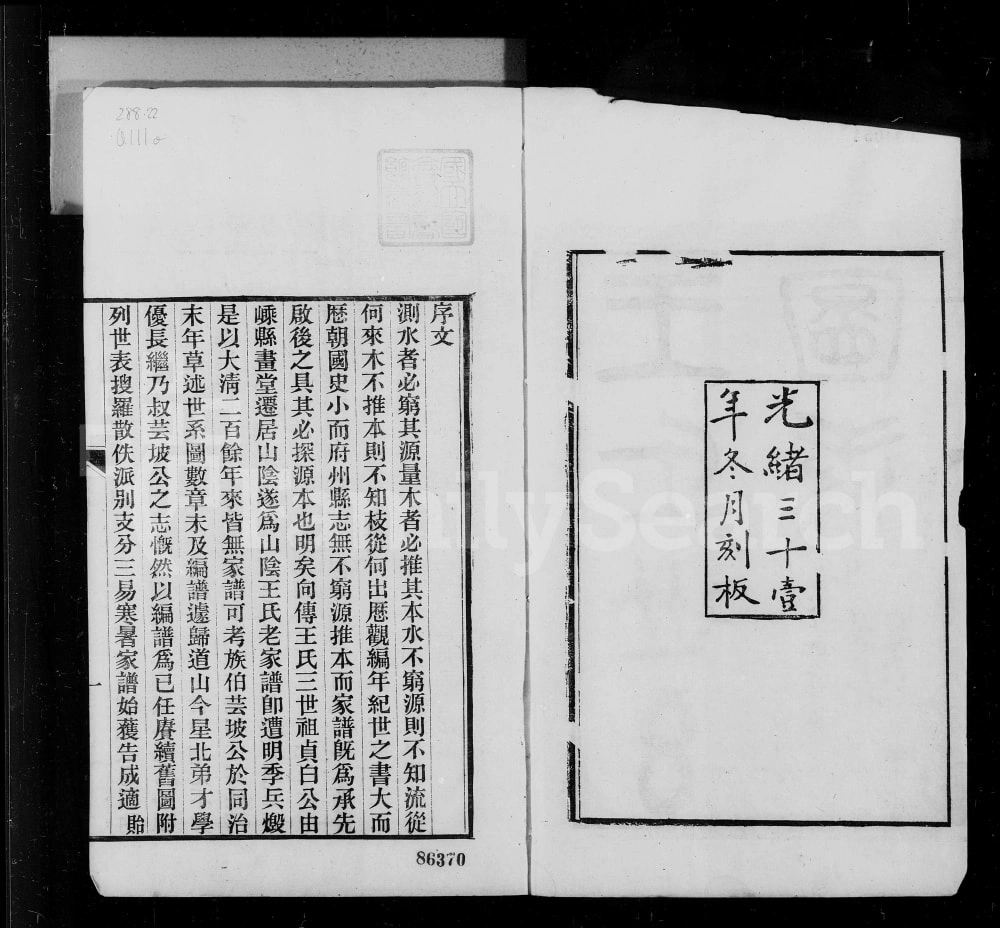 光緒三十壹
年冬月刻板
序文
測水者必窮其源量木者必推其本水不窮源則不知流從
何來木不推本則不知枝從何出歷觀編年紀世之書大而
歷朝國史小而府州縣志無不窮源推本而家譜旣爲承先
啟後之具其必探源本也明矣向傳王氏三世祖貞白公由
嵊縣畫堂遷居山陰遂爲山陰王氏老家譜卽遭明季兵燬
是以大淸二百餘年來皆無家譜可考族伯芸坡公於同治
末年草述世系圖數章未及編譜遽歸道山今星北弟才學
優長繼乃叔芸坡公之志慨然以編譜爲己任賡續舊圖附
列世表搜羅散佚派別支分三易寒暑家譜始獲告成適貽
一
86370
288.22
FamilySearch